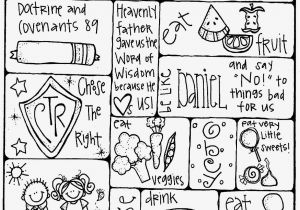 Doctrine and
Covenants 89
Heavenly
father
gave us the
Word of
Wisdom
because He
us!
eat
fruit
be like
Daniel
and say
"No!" to
things bad
for us
CTR
Chose
The
Right
eat
veggies
eat very
little
sweets!
drink
eat